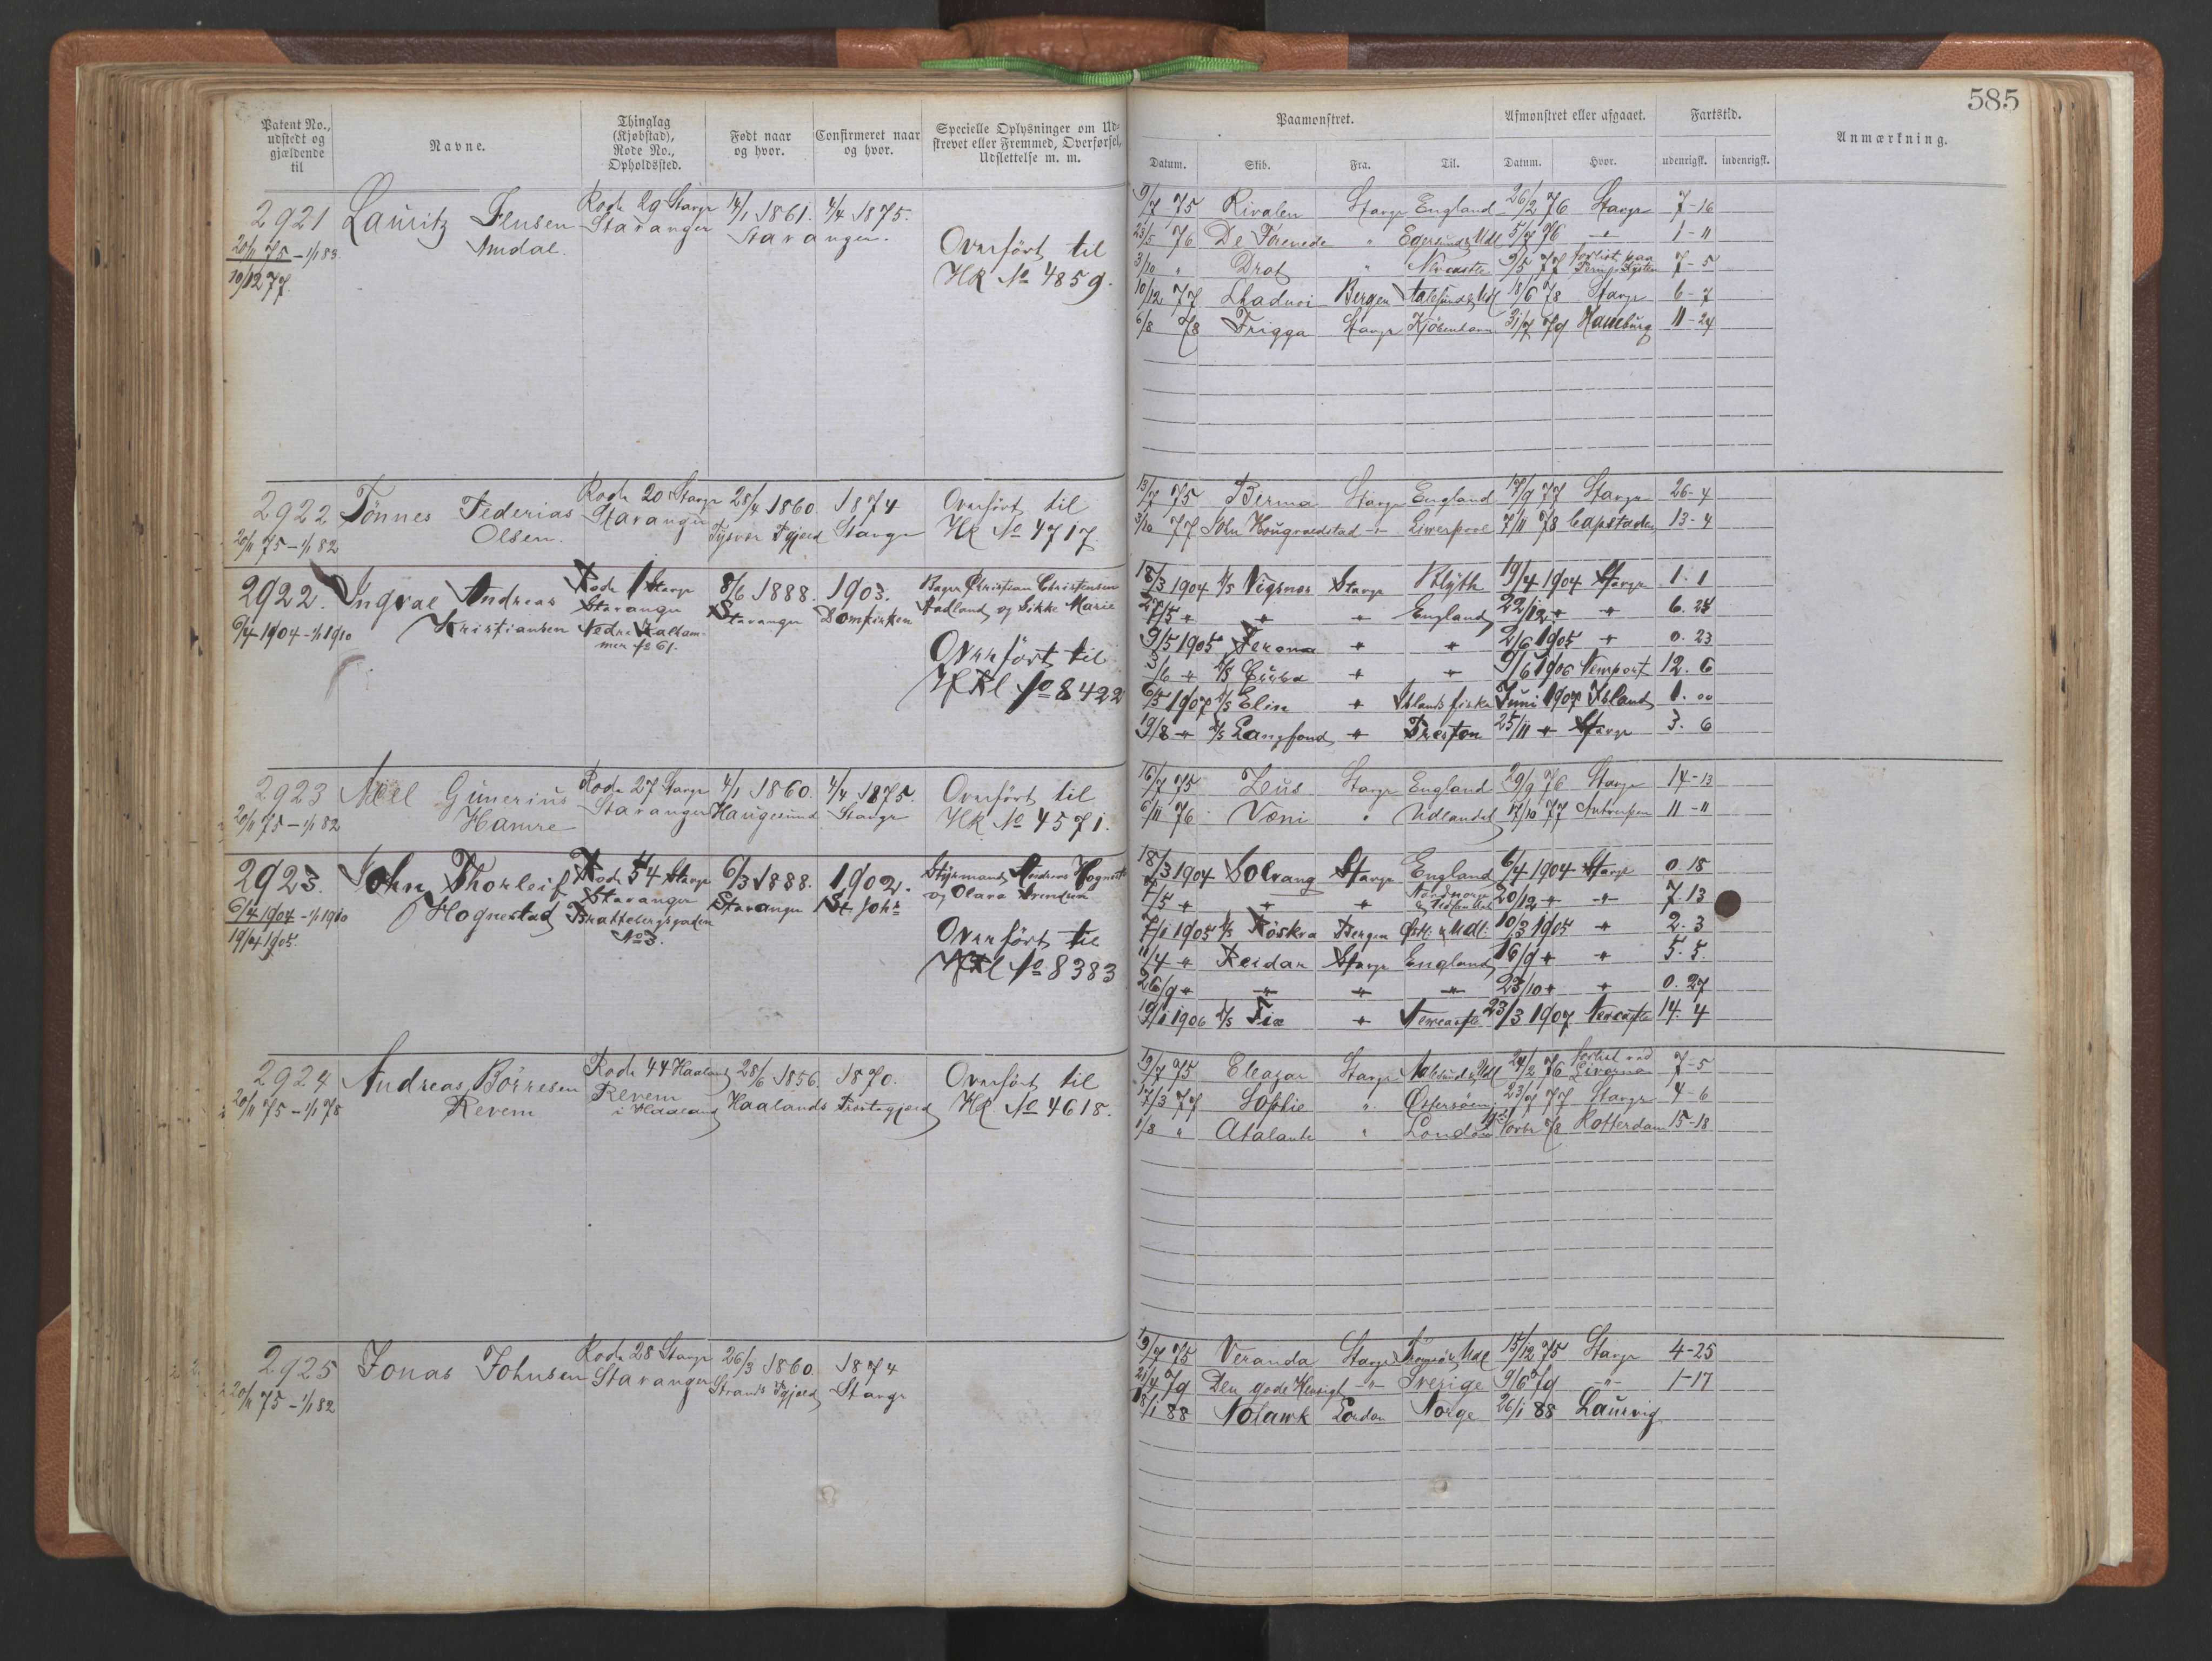 585
Patent No., udstedt og gjældende til
Navne.
Thinglag (Kjøbstad), Rode No., Opholdssted.
Født naar og hvor.
Confirmeret naar og hvor.
Specielle Oplysninger om Udstrevet eller Fremmed, Overførsel, Udslettelse m. m.
Paamonstret.
Afmonstret eller afgaaet.
Fartstid.
Anmærkning.
Datum. Skib. Fra. Til. Datum. Hvor. udenrigsk. indenrigsk.
2921 Lauritz Jensen Rode 29 Stavgr 14/1 1861. 4/4 1875.
Amdal. Stavanger Stavanger.
20/11 75 – 1/1 83
10/12 77.
Overført til
HR No 4859.
9/7 75 Rivalen Stavgr England 26/2 76 Stavgr 7-16
23/5 76 De Forenede " Egersund & Udl 5/7 76 1-11
3/10 " Drot " Newcastle 9/5 77 forlist paa 7-5
10/12 77 Bergen Aalesund & Udl 18/6 78 Stavgr 6-7
6/8 78 Frigga Stavgr Kjöbenhavn 31/7 79 Hamburg 11-24
2922 Tönnes Federias Rode 20 Stavgr 28/4 1860. 1874 Overført til
Olsen. Stavanger Tysvær Pgjeld Stavgr HR No 4717.
20/11 75 – 1/1 82
13/7 75 Berma Stavgr England 17/9 77 Stavgr 26-4
3/10 77 John Hougvaldstad Liverpool 7/11 78 Capstaden 13-4
2922. Ingval Andreas Rode 1 Stavgr 8/6 1888. 1903. Bager Christian Christensen
6/4 1904 – 1/1 1910 Kristiansen Stavanger Stavanger Domkirken Aadland og Sikke Marie
Nedre
61.
Overført til
HR No 8422
18/3 1904 Vigsnes Stavgr Blyth 19/4 1904 Stavgr 1. 1
27/5 " " " England 22/12 " " 6. 25
9/5 1905 Verona " " 2/6 1905 " 0. 23
3/6 " " " 9/6 1906 Newport 12. 6
6/5 1907 Elin " Islandsfiske Juni 1907 Island 1. 00
19/8 " Langfond " Preston 25/11 " Stavgr 3. 6
2923 Gunerius Rode 27 Stavgr 4/1 1860. 4/4 1875. Overført til
20/11 75 – 1/1 82 Hamre Stavanger Haugesund Stavgr HR No 4571.
16/7 75 Zeus Stavgr England 29/9 76 Stavgr 14-13
6/11 76 Væni " Udlandet 17/10 77 Antwerpen 11-11
2923. John Thorleif Rode 54 Stavgr 6/3 1888. 1902. Styrmand Andreas Hognestad
6/4 1904 – 1/1 1910 Hognestad Stavanger Stavanger St Johs og Olava
19/4 1905. Brattebergsgaden
No 3.
Overført til
HR No 8383
18/3 1904 Solvang Stavgr England 6/4 1904 Stavgr 0. 18
7/5 " " " Nordnorge 20/12 " " 7. 13
7/1 1905 Röskva Bergen & Udl: 10/3 1905 " 2. 3
11/4 " Reidar Stavgr England 16/9 " " 5. 5.
26/9 " " " " 23/10 " " 0. 27
19/1 1906 Newcastle 23/3 1907 Newcastle 14. 4
2924 Andreas Börresen Rode 44 Haaland 28/6 1856. 1870. Overført til
20/11 75 – 1/1 78 Revem Revem i Haaland Haalands Præstegjeld HR No 4618.
19/7 75 Eleazar Stavgr Aalesund & Udl 24/2 76 forlist ved Livorno 7-5
17/3 77 Sophie " Østersöen 23/7 77 Stavgr 4-6
1/8 " Atalante " London Novbr 78 Rotterdam 15-18
2925 Jonas Johnsen Rode 28 Stavgr 26/3 1860. 1874
20/11 75 – 1/1 82 Stavanger Strands Pgjeld Stavgr
19/7 75 Veranda Stavgr Tromsö & Udl 15/12 75 Stavgr 4-25
21/4 79 Den gode Hensigt " Sverige 9/6 79 " 1-17
18/1 88 London Norge 26/1 88 Laurvig